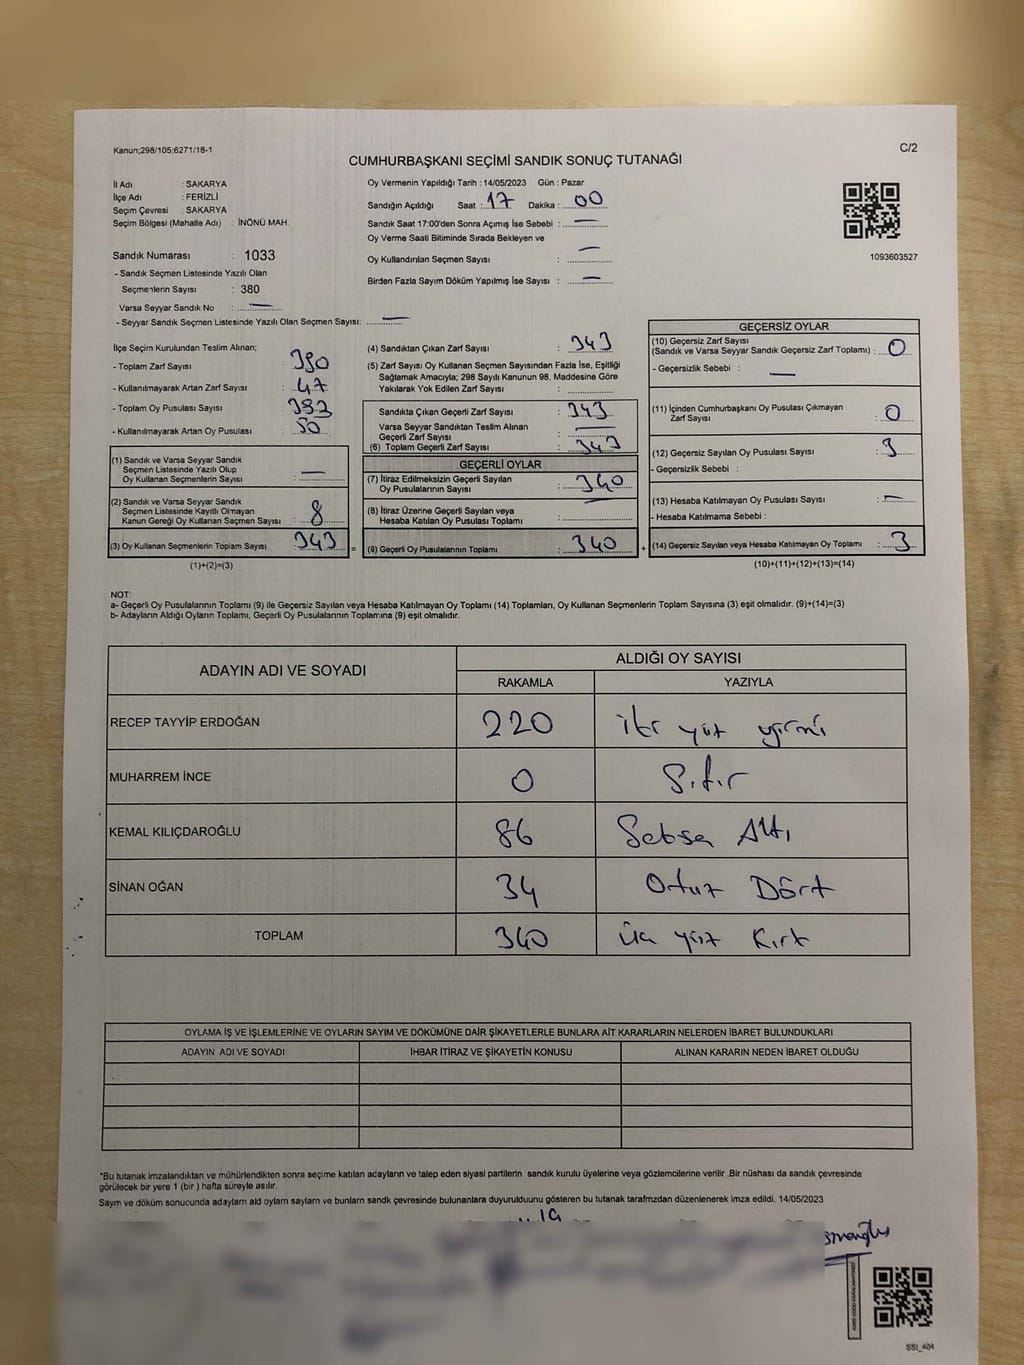 Kanun;298/105;6271/18-1
C/2
CUMHURBAŞKANI SEÇİMİ SANDIK SONUÇ TUTANAĞI
İl Adı : SAKARYA
İlçe Adı : FERİZLİ
Seçim Çevresi : SAKARYA
Seçim Bölgesi (Mahalle Adı) : İNÖNÜ MAH.
Sandık Numarası : 1033
- Sandık Seçmen Listesinde Yazılı Olan
Seçmenlerin Sayısı : 380
Varsa Seyyar Sandık No : —
- Seyyar Sandık Seçmen Listesinde Yazılı Olan Seçmen Sayısı: —
Oy Vermenin Yapıldığı Tarih : 14/05/2023 Gün : Pazar
Sandığın Açıldığı Saat : 17 Dakika : 00
Sandık Saat 17:00'den Sonra Açımış İse Sebebi : —
Oy Verme Saati Bitiminde Sırada Bekleyen ve
Oy Kullandırılan Seçmen Sayısı : —
Birden Fazla Sayım Döküm Yapılmış İse Sayısı : —
1093603527
İlçe Seçim Kurulundan Teslim Alınan;
- Toplam Zarf Sayısı : 390
- Kullanılmayarak Artan Zarf Sayısı : 47
- Toplam Oy Pusulası Sayısı : 393
- Kullanılmayarak Artan Oy Pusulası : 50
(1) Sandık ve Varsa Seyyar Sandık
Seçmen Listesinde Yazılı Olup
Oy Kullanan Seçmenlerin Sayısı : —
(2) Sandık ve Varsa Seyyar Sandık
Seçmen Listesinde Kayıtlı Olmayan
Kanun Gereği Oy Kullanan Seçmen Sayısı : 8
(3) Oy Kullanan Seçmenlerin Toplam Sayısı : 343 =
(1)+(2)=(3)
(4) Sandıktan Çıkan Zarf Sayısı : 343
(5) Zarf Sayısı Oy Kullanan Seçmen Sayısından Fazla İse, Eşitliği
Sağlamak Amacıyla; 298 Sayılı Kanunun 98. Maddesine Göre
Yakılarak Yok Edilen Zarf Sayısı :
Sandıkta Çıkan Geçerli Zarf Sayısı : 343
Varsa Seyyar Sandıktan Teslim Alınan
Geçerli Zarf Sayısı : —
(6) Toplam Geçerli Zarf Sayısı : 343
GEÇERLİ OYLAR
(7) İtiraz Edilmeksizin Geçerli Sayılan
Oy Pusulalarının Sayısı : 340
(8) İtiraz Üzerine Geçerli Sayılan veya
Hesaba Katılan Oy Pusulası Toplamı :
(9) Geçerli Oy Pusulalarının Toplamı : 340 +
GEÇERSİZ OYLAR
(10) Geçersiz Zarf Sayısı
(Sandık ve Varsa Seyyar Sandık Geçersiz Zarf Toplamı) : 0
- Geçersizlik Sebebi : —
(11) İçinden Cumhurbaşkanı Oy Pusulası Çıkmayan
Zarf Sayısı : 0
(12) Geçersiz Sayılan Oy Pusulası Sayısı : 3
- Geçersizlik Sebebi :
(13) Hesaba Katılmayan Oy Pusulası Sayısı : —
- Hesaba Katılmama Sebebi :
(14) Geçersiz Sayılan veya Hesaba Katılmayan Oy Toplamı : 3
(10)+(11)+(12)+(13)=(14)
NOT:
a- Geçerli Oy Pusulalarının Toplamı (9) ile Geçersiz Sayılan veya Hesaba Katılmayan Oy Toplamı (14) Toplamları, Oy Kullanan Seçmenlerin Toplam Sayısına (3) eşit olmalıdır. (9)+(14)=(3)
b- Adayların Aldığı Oyların Toplamı, Geçerli Oy Pusulalarının Toplamına (9) eşit olmalıdır.
ADAYIN ADI VE SOYADI ALDIĞI OY SAYISI
RAKAMLA YAZIYLA
RECEP TAYYİP ERDOĞAN 220 iki yüz yirmi
MUHARREM İNCE 0 Sıfır
KEMAL KILIÇDAROĞLU 86 Seksen Altı
SİNAN OĞAN 34 Otuz Dört
TOPLAM 340 Üç yüz Kırk
OYLAMA İŞ VE İŞLEMLERİNE VE OYLARIN SAYIM VE DÖKÜMÜNE DAİR ŞİKAYETLERLE BUNLARA AİT KARARLARIN NELERDEN İBARET BULUNDUKLARI
ADAYIN ADI VE SOYADI İHBAR İTİRAZ VE ŞİKAYETİN KONUSU ALINAN KARARIN NEDEN İBARET OLDUĞU
*Bu tutanak imzalandıktan ve mühürlendikten sonra seçime katılan adayların ve talep eden siyasi partilerin sandık kurulu üyelerine veya gözlemcilerine verilir .Bir nüshası da sandık çevresinde
görülecek bir yere 1 (bir ) hafta süreyle asılır.
Sayım ve döküm sonucunda adayların ald oyların sayların ve bunların sandk çevresinde bulunanlara duyurulduunu gösteren bu tutanak tarafmzdan düzenlenerek imza edildi. 14/05/2023
SSI_404